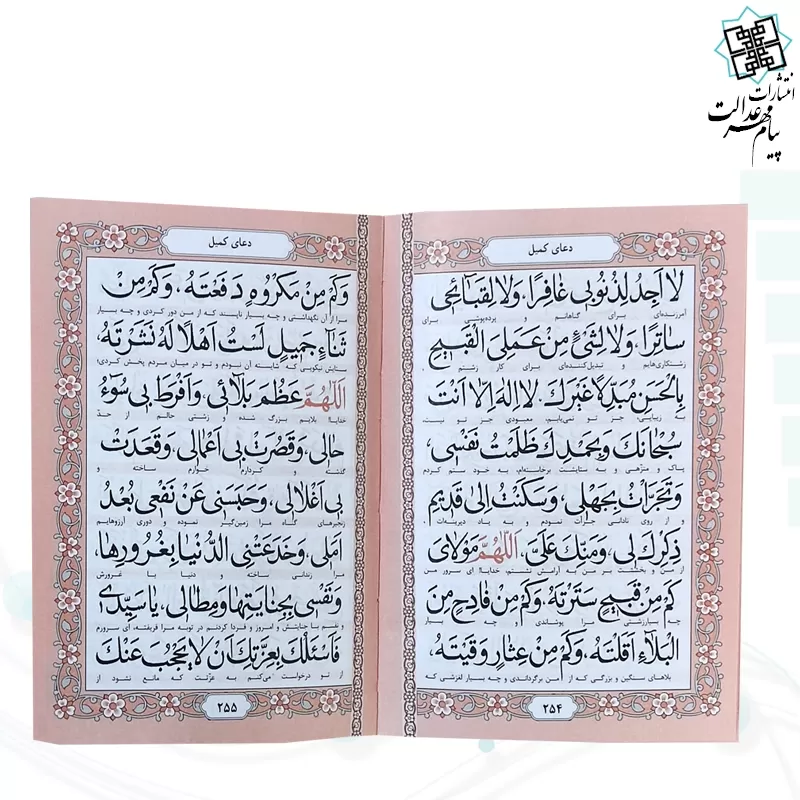 انتشارات
پیام مهر عدالت
دعای کمیل
لا اَجِدُ لِذُنُوبی غافِرًا، وَلا لِقَبائِحی
آمرزنده‌ای برای گناهانم و پرده‌پوشی برای
ساتِرًا، وَلا لِشَیْءٍ مِنْ عَمَلِیَ الْقَبیحِ
زشتکاری‌هایم و تبدیل‌کننده‌ای برای کار زشتم
بِالْحَسَنِ مُبَدِّلاً غَیْرَکَ، لا اِلهَ اِلّا اَنْتَ
به زیبایی، جز تو نمی‌یابم، معبودی جز تو نیست،
سُبْحانَکَ وَبِحَمْدِکَ ظَلَمْتُ نَفْسی،
پاک و منزّهی و به ستایشت برخاسته‌ام، به خود ستم کردم
وَتَجَرَّاْتُ بِجَهْلی، وَسَکَنْتُ اِلی قَدیمِ
و از روی نادانی جرأت نمودم و به یاد دیرینه‌ات
ذِکْرِکَ لی، وَمَنِّکَ عَلَیَّ، اَللّهُمَّ مَوْلایَ
از من و بخششت بر من به آرامش نشستم، خدایا! ای سرور من
کَمْ مِنْ قَبیحٍ سَتَرْتَهُ، وَکَمْ مِنْ فادِحٍ مِنَ
چه بسیار زشتی مرا پوشاندی و چه بسیار
الْبَلاءِ اَقَلْتَهُ، وَکَمْ مِنْ عِثارٍ وَقَیْتَهُ،
بلاهای سنگین و بزرگی که از من برگرداندی و چه بسیار لغزشی که
۲۵۴
دعای کمیل
وَکَمْ مِنْ مَکْرُوهٍ دَفَعْتَهُ، وَکَمْ مِنْ
مرا از آن نگهداشتی و چه بسیار ناپسند که از من دور کردی و چه بسیار
ثَناءٍ جَمیلٍ لَسْتُ اَهْلاً لَهُ نَشَرْتَهُ،
ستایش نیکویی که شایسته آن نبودم و تو در میان مردم پخش کردی؛
اَللّهُمَّ عَظُمَ بَلائی، وَاَفْرَطَ بی سُوءُ
خدایا! بلایم بزرگ شده و زشتی حالم از حدّ
حالی، وَقَصُرَتْ بی اَعْمالی، وَقَعَدَتْ
گذشت و کردارم خوارم ساخته و
بی اَغْلالی، وَحَبَسَنی عَنْ نَفْعی بُعْدُ
زنجیرهای گناه مرا زمین‌گیر نموده و دوری آرزوهایم
اَمَلی، وَخَدَعَتْنِی الدُّنْیا بِغُرُورِها،
مرا زندانی ساخته و دنیا با غرورش
وَنَفْسی بِجِنایَتِها وَمِطالی، یا سَیِّدی
و نفسم با جنایتش و امروز و فردا کردنم در توبه مرا فریفته، ای سرورم
فَاَسْئَلُکَ بِعِزَّتِکَ اَنْ لا یَحْجُبَ عَنْکَ
از تو درخواست می‌کنم به عزّتت که مانع نشود از
۲۵۵